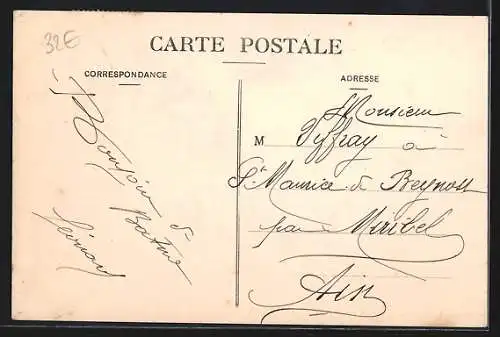 32E
CARTE POSTALE
CORRESPONDANCE
Bonjour
de
ADRESSE
Monsieur
M Tiffray à
St Maurice de Beynost
par Miribel
Ain